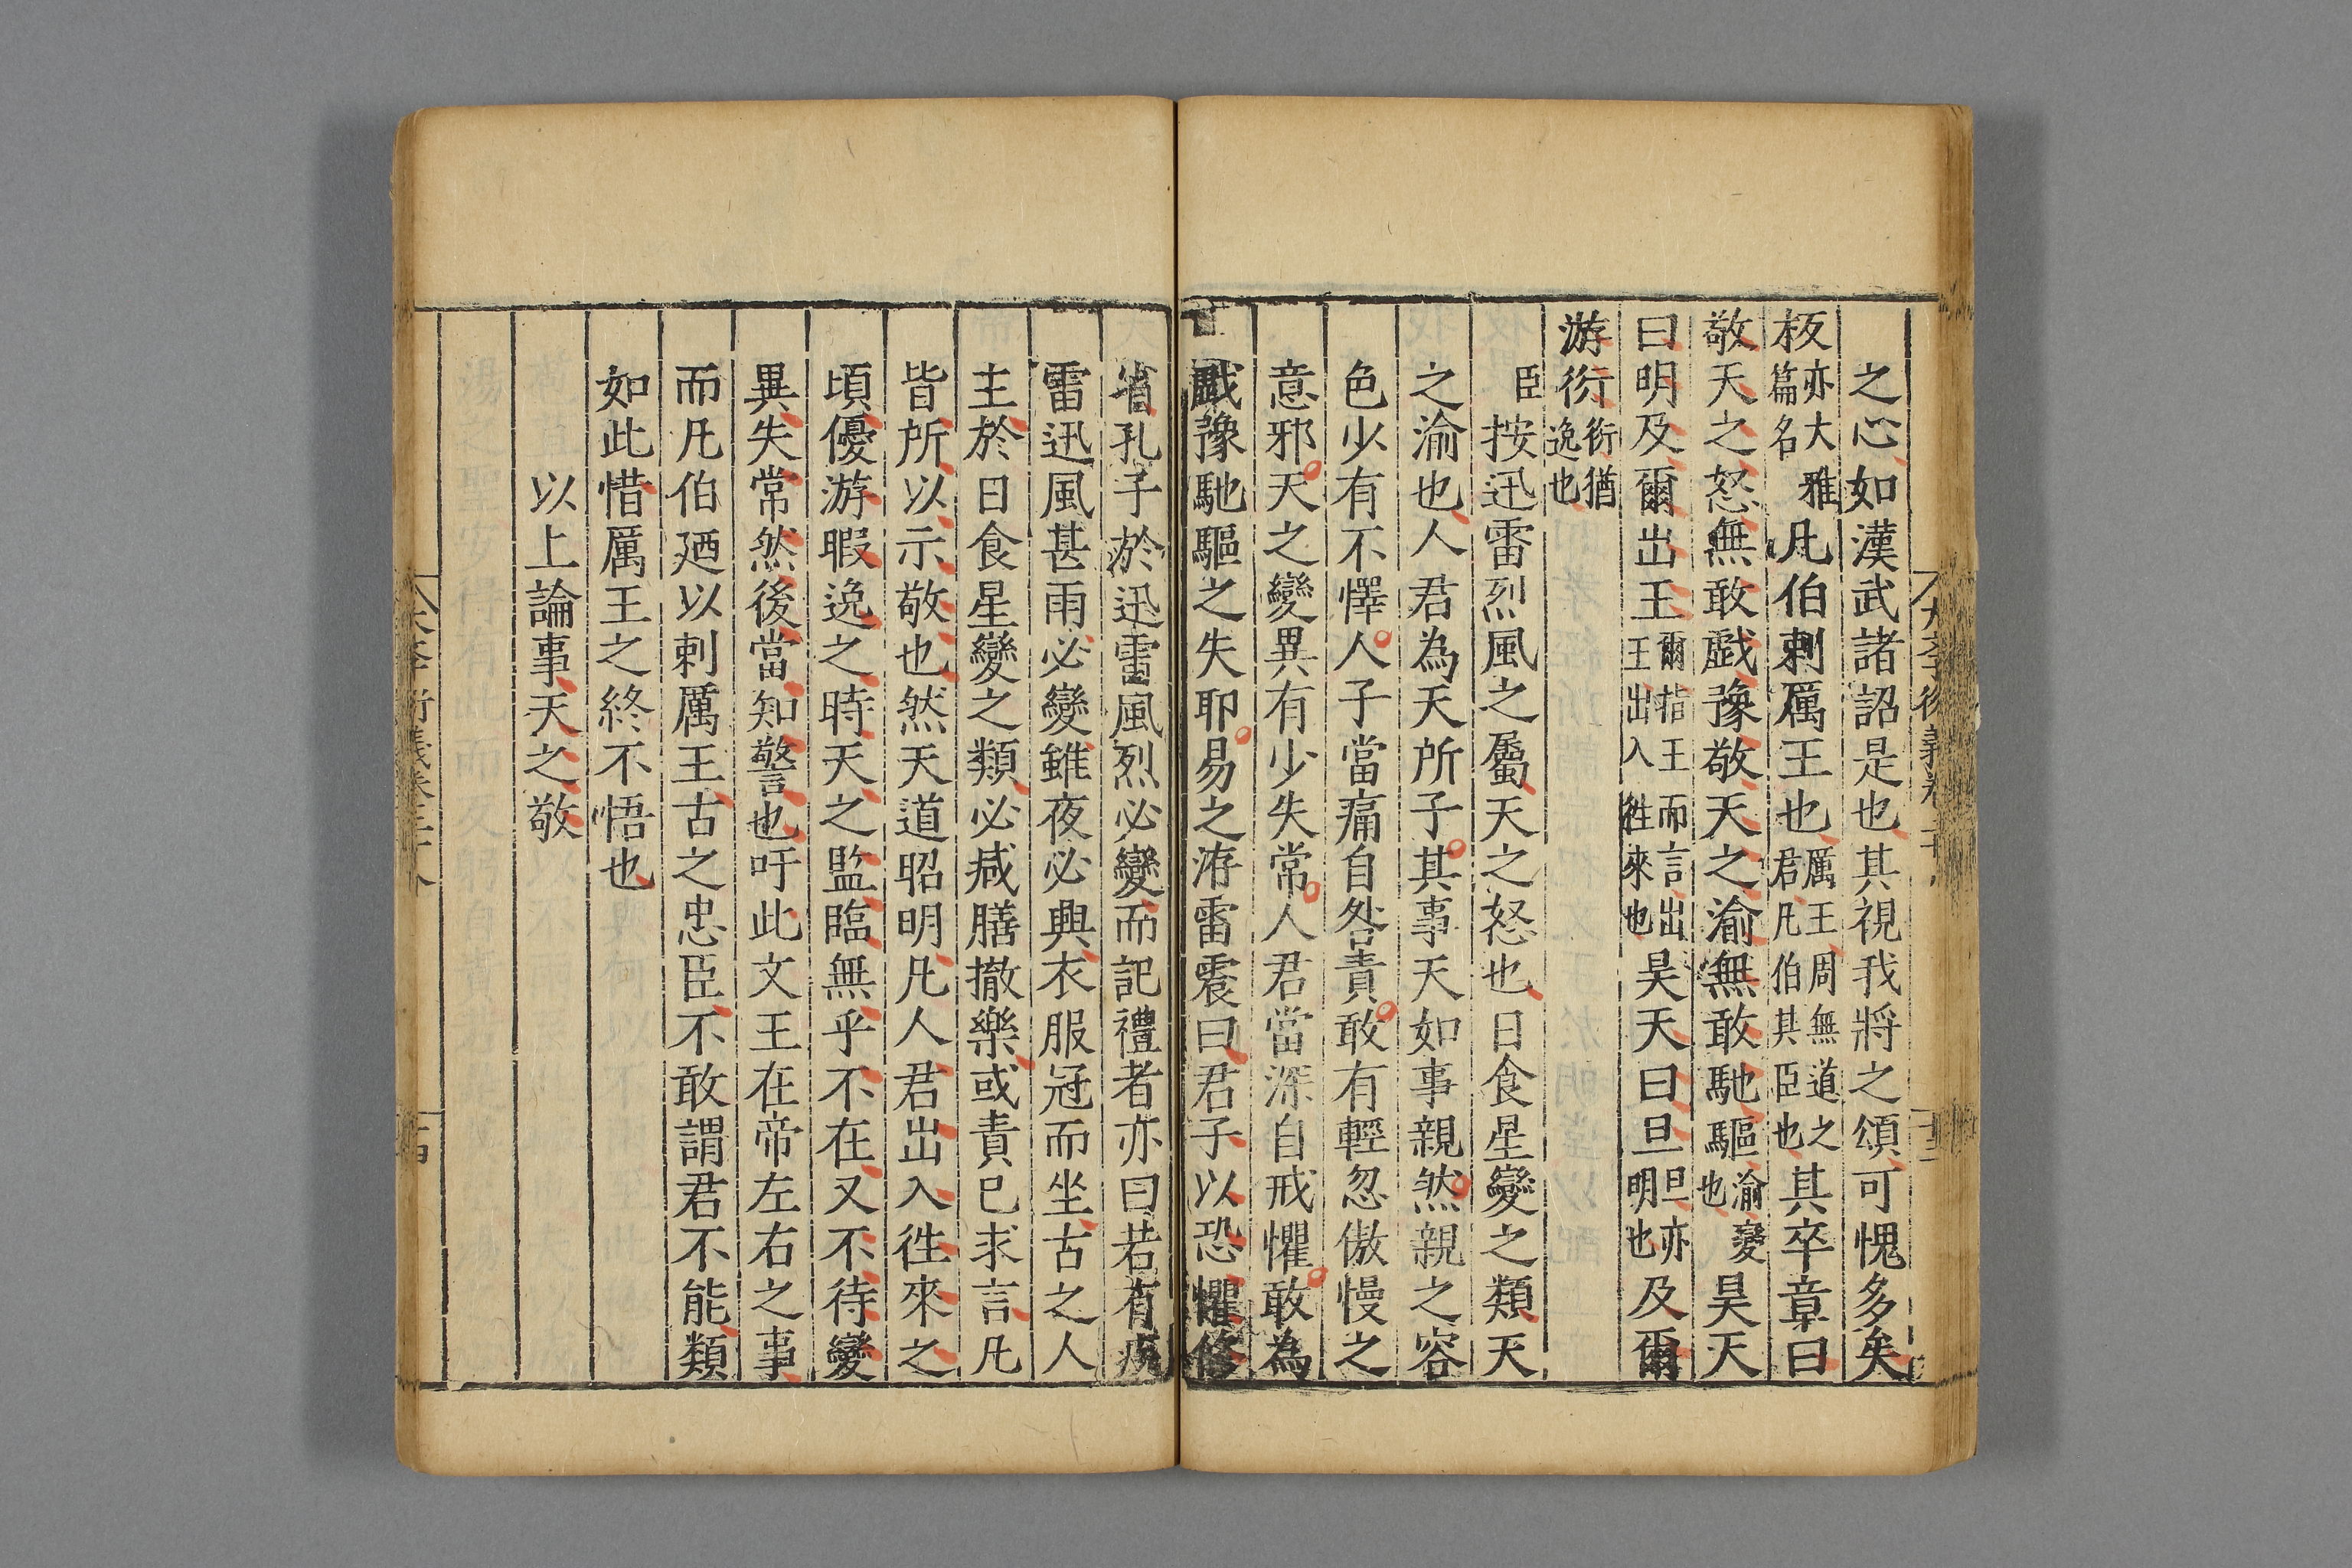 之心如漢武諸詔是也其視我將之頌可愧多矣
板亦大雅篇名凡伯刺厲王也厲王周無道之君凡伯其臣也其卒章曰
敬天之怒無敢戲豫敬天之渝無敢馳驅渝變也昊天
曰明及爾出王爾指王而言出王出入徃來也昊天曰旦旦亦明也及爾
游衍衍猶逸也
臣按迅雷烈風之屬天之怒也日食星變之類天
之渝也人君為天所子其事天如事親然親之容
色少有不懌人子當痛自咎責敢有輕忽傲慢之
意邪天之變異有少失常人君當深自戒懼敢為
戲豫馳驅之失耶易之洊雷震曰君子以恐懼修
省孔子於迅雷風烈必變而記禮者亦曰若有疾
雷迅風甚雨必變雖夜必興衣服冠而坐古之人
主於日食星變之類必減膳撤樂或責已求言凡
皆所以示敬也然天道昭明凡人君出入徃來之
頃優游暇逸之時天之監臨無乎不在又不待變
異失常然後當知警也吁此文王在帝左右之事
而凡伯廼以刺厲王古之忠臣不敢謂君不能類
如此惜厲王之終不悟也
以上論事天之敬